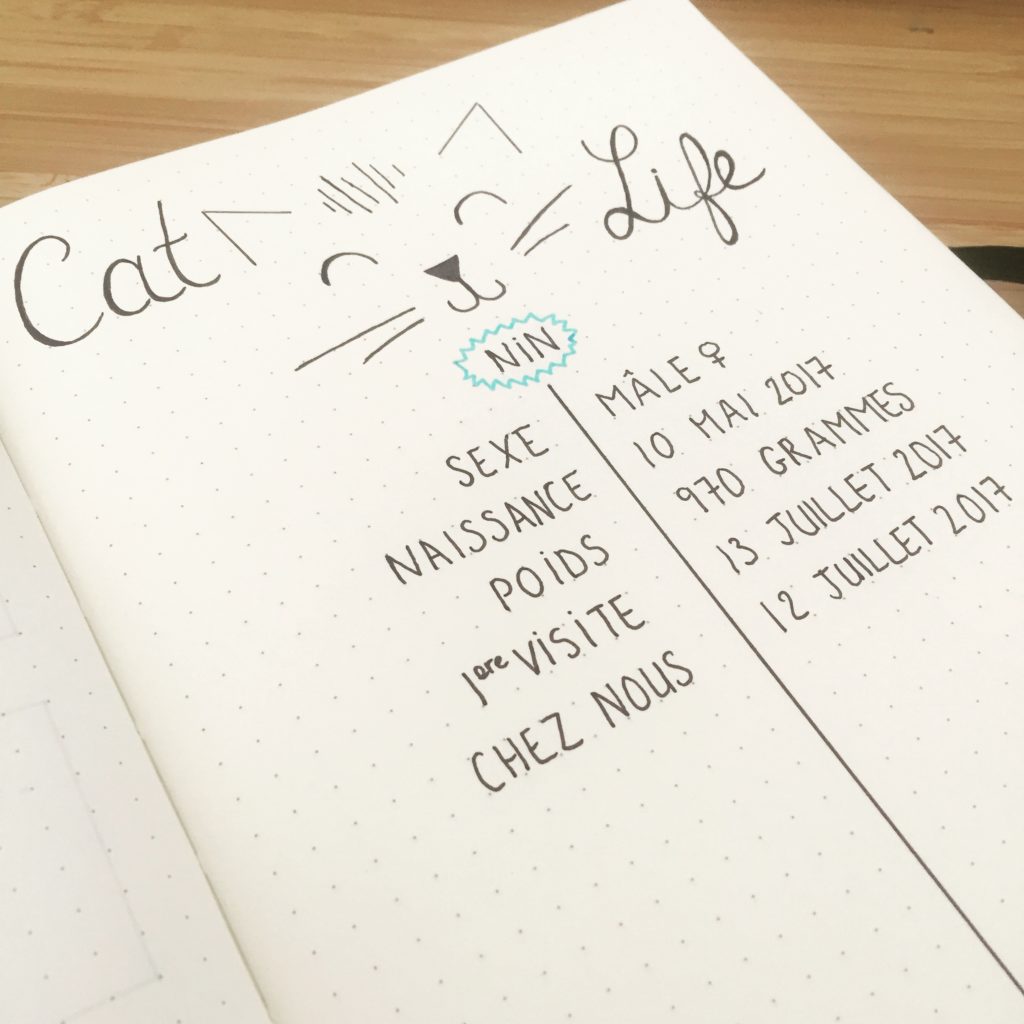 Cat Life
NiN
SEXE MÂLE ♀
NAISSANCE 10 MAI 2017
POiDS 970 GRAMMES
1ere ViSiTE 13 JUILLET 2017
CHEZ NOUS 12 JUILLET 2017